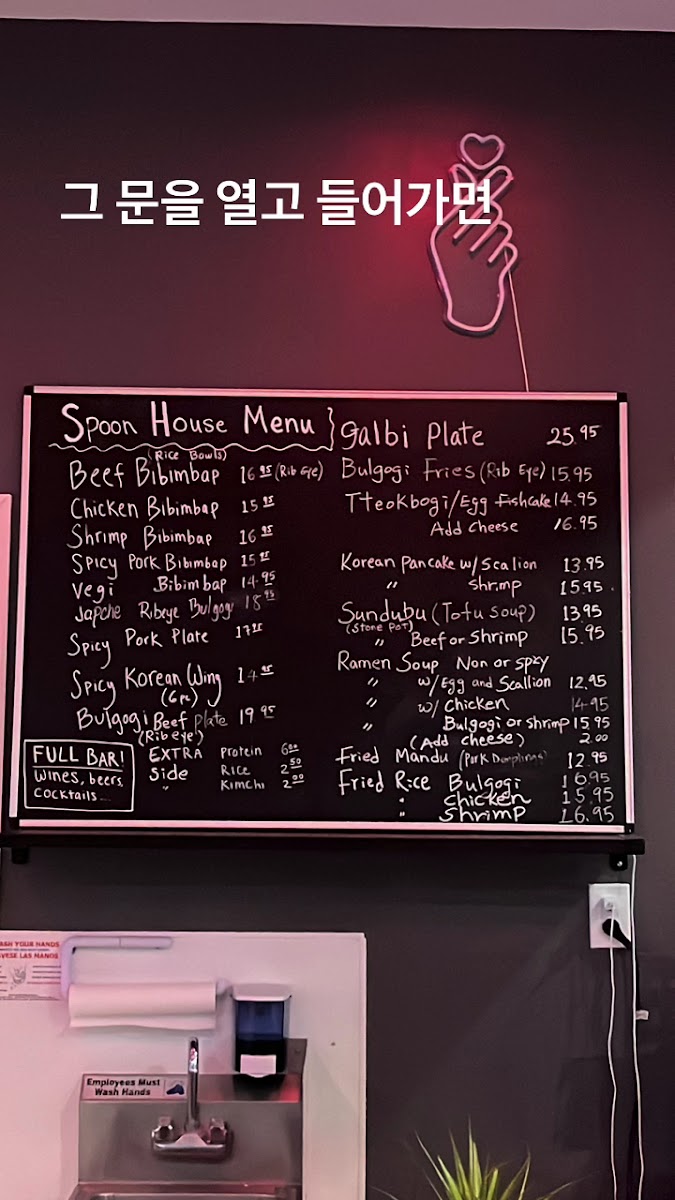 그 문을 열고 들어가면
Spoon House Menu
(Rice Bowls)
Beef Bibimbap 16.95 (Rib Eye)
Chicken Bibimbap 15.95
Shrimp Bibimbap 16.95
Spicy Pork Bibimbap 15.95
Vegi Bibimbap 14.95
Japche Ribeye Bulgogi 18.95
Spicy Pork Plate 17.95
Spicy Korean Wing 14.95
(6pc)
Bulgogi Beef plate 19.95
(Rib eye)
EXTRA Protein 6.00
Side Rice 2.50
" Kimchi 2.00
FULL BAR!
Wines, beers,
Cocktails...
galbi Plate 25.95
Bulgogi Fries (Rib Eye) 15.95
Tteokbogi/Egg Fishcake 14.95
Add cheese 16.95
Korean Pancake w/ Scalion 13.95
" Shrimp 15.95
Sundubu (Tofu Soup) 13.95
(Stone Pot)
" Beef or Shrimp 15.95
Ramen Soup Non or spzy
" w/Egg and Scallion 12.95
" w/ Chicken 14.95
" Bulgogi or shrimp 15.95
(Add cheese) 2.00
Fried Mandu (Pork Dumplings) 12.95
Fried Rice Bulgogi 16.95
" Chicken 15.95
" Shrimp 16.95
WASH YOUR HANDS
LAVESE LAS MANOS
Employees Must
Wash Hands